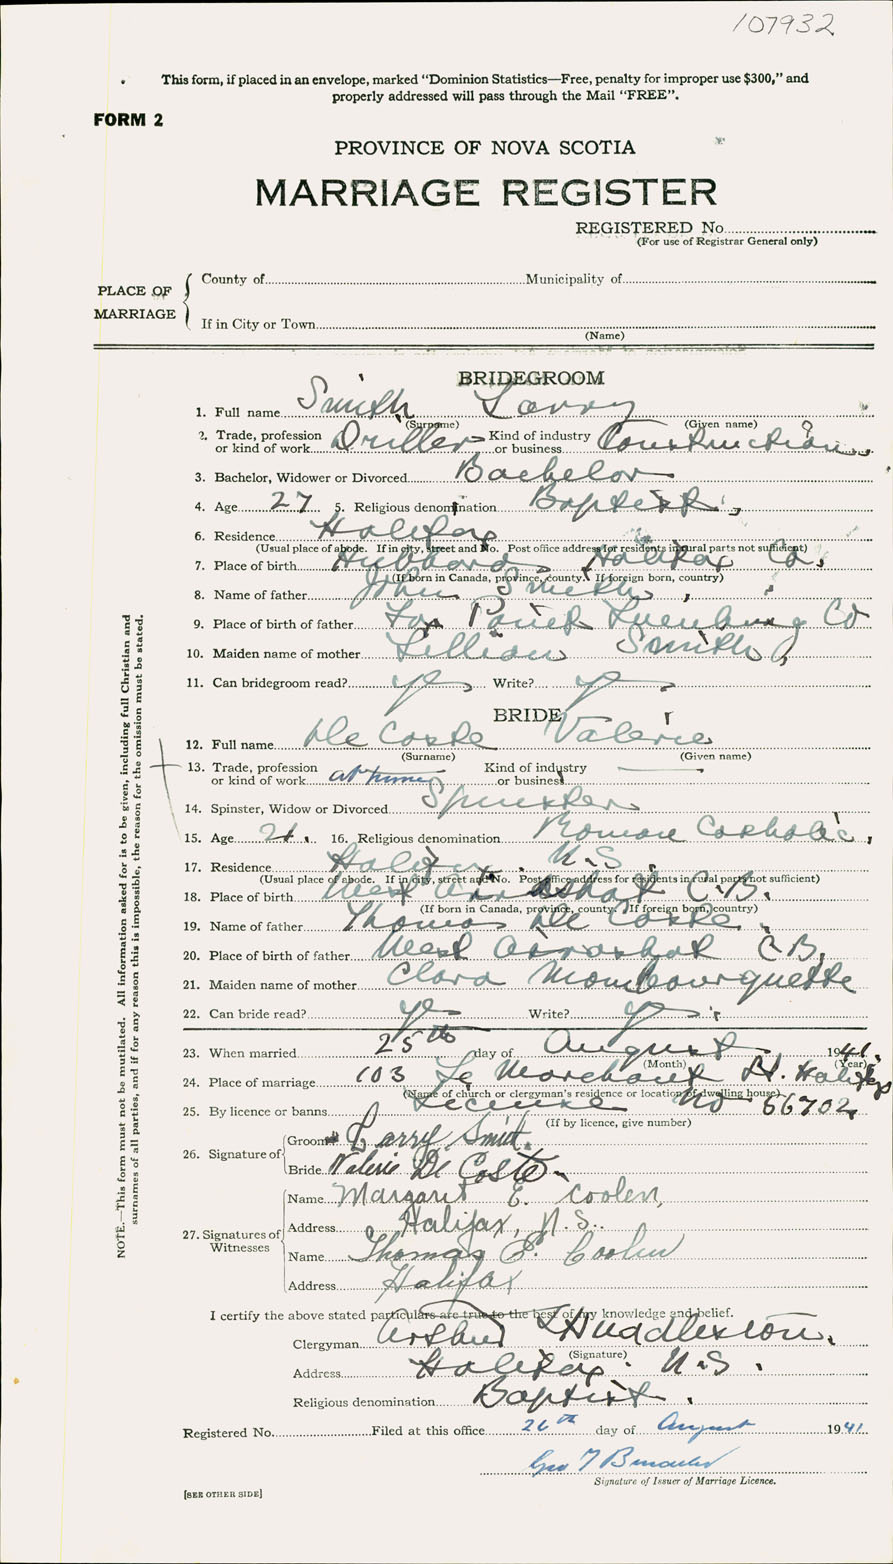 107932
This form, if placed in an envelope, marked "Dominion Statistics—Free, penalty for improper use $300," and
properly addressed will pass through the Mail "FREE".
FORM 2
PROVINCE OF NOVA SCOTIA
MARRIAGE REGISTER
REGISTERED No.
(For use of Registrar General only)
PLACE OF MARRIAGE
County of Municipality of
If in City or Town
(Name)
BRIDEGROOM
1. Full name Smith Larry
(Surname) (Given name)
2. Trade, profession or kind of work Driller Kind of industry or business Construction
3. Bachelor, Widower or Divorced Bachelor
4. Age 27 5. Religious denomination Baptist
6. Residence Halifax
(Usual place of abode. If in city, street and No. Post office address for residents in rural parts not sufficient)
7. Place of birth Hubbards Halifax Co.
(If born in Canada, province, county. If foreign born, country)
8. Name of father John Smith
9. Place of birth of father Fox Point Luenburg Co
10. Maiden name of mother Lillian Smith
11. Can bridegroom read? yes Write? yes
BRIDE
12. Full name De Coste Valerie
(Surname) (Given name)
13. Trade, profession or kind of work at home Kind of industry or business
14. Spinster, Widow or Divorced Spinster
15. Age 21. 16. Religious denomination Roman Catholic
17. Residence Halifax N.S.
(Usual place of abode. If in city, street and No. Post office address for residents in rural parts not sufficient)
18. Place of birth West C.B.
(If born in Canada, province, county. If foreign born, country)
19. Name of father Thomas De Coste
20. Place of birth of father West Arrashat C.B.
21. Maiden name of mother Clara Mombourquette
22. Can bride read? yes Write? yes
23. When married 25th day of August 1941.
(Month) (Year)
24. Place of marriage 103 Le Marchant St. Halifax
(Name of church or clergyman's residence or location of dwelling house)
25. By licence or banns License No 66702
(If by licence, give number)
26. Signature of
Groom Larry Smith
Bride Valerie De Coste
27. Signatures of Witnesses
Name Margaret E. Coolen,
Address Halifax, N.S.
Name Thomas E. Coolen
Address Halifax
I certify the above stated particulars are true to the best of my knowledge and belief.
Clergyman Arthur Huddleston.
(Signature)
Address Halifax. N.S.
Religious denomination Baptist.
Registered No. Filed at this office 26th day of August 1941
Geo T
Signature of Issuer of Marriage Licence.
[SEE OTHER SIDE]
NOTE.—This form must not be mutilated. All information asked for is to be given, including full Christian and
surnames of all parties, and if for any reason this is impossible, the reason for the omission must be stated.